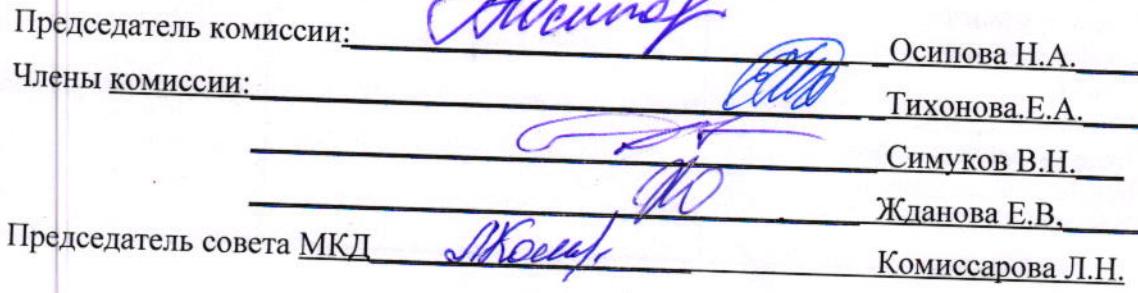 Председатель комиссии: Осипова Н.А.
Члены комиссии: Тихонова.Е.А.
Симуков В.Н.
Жданова Е.В,
Председатель совета МКД Комиссарова Л.Н.